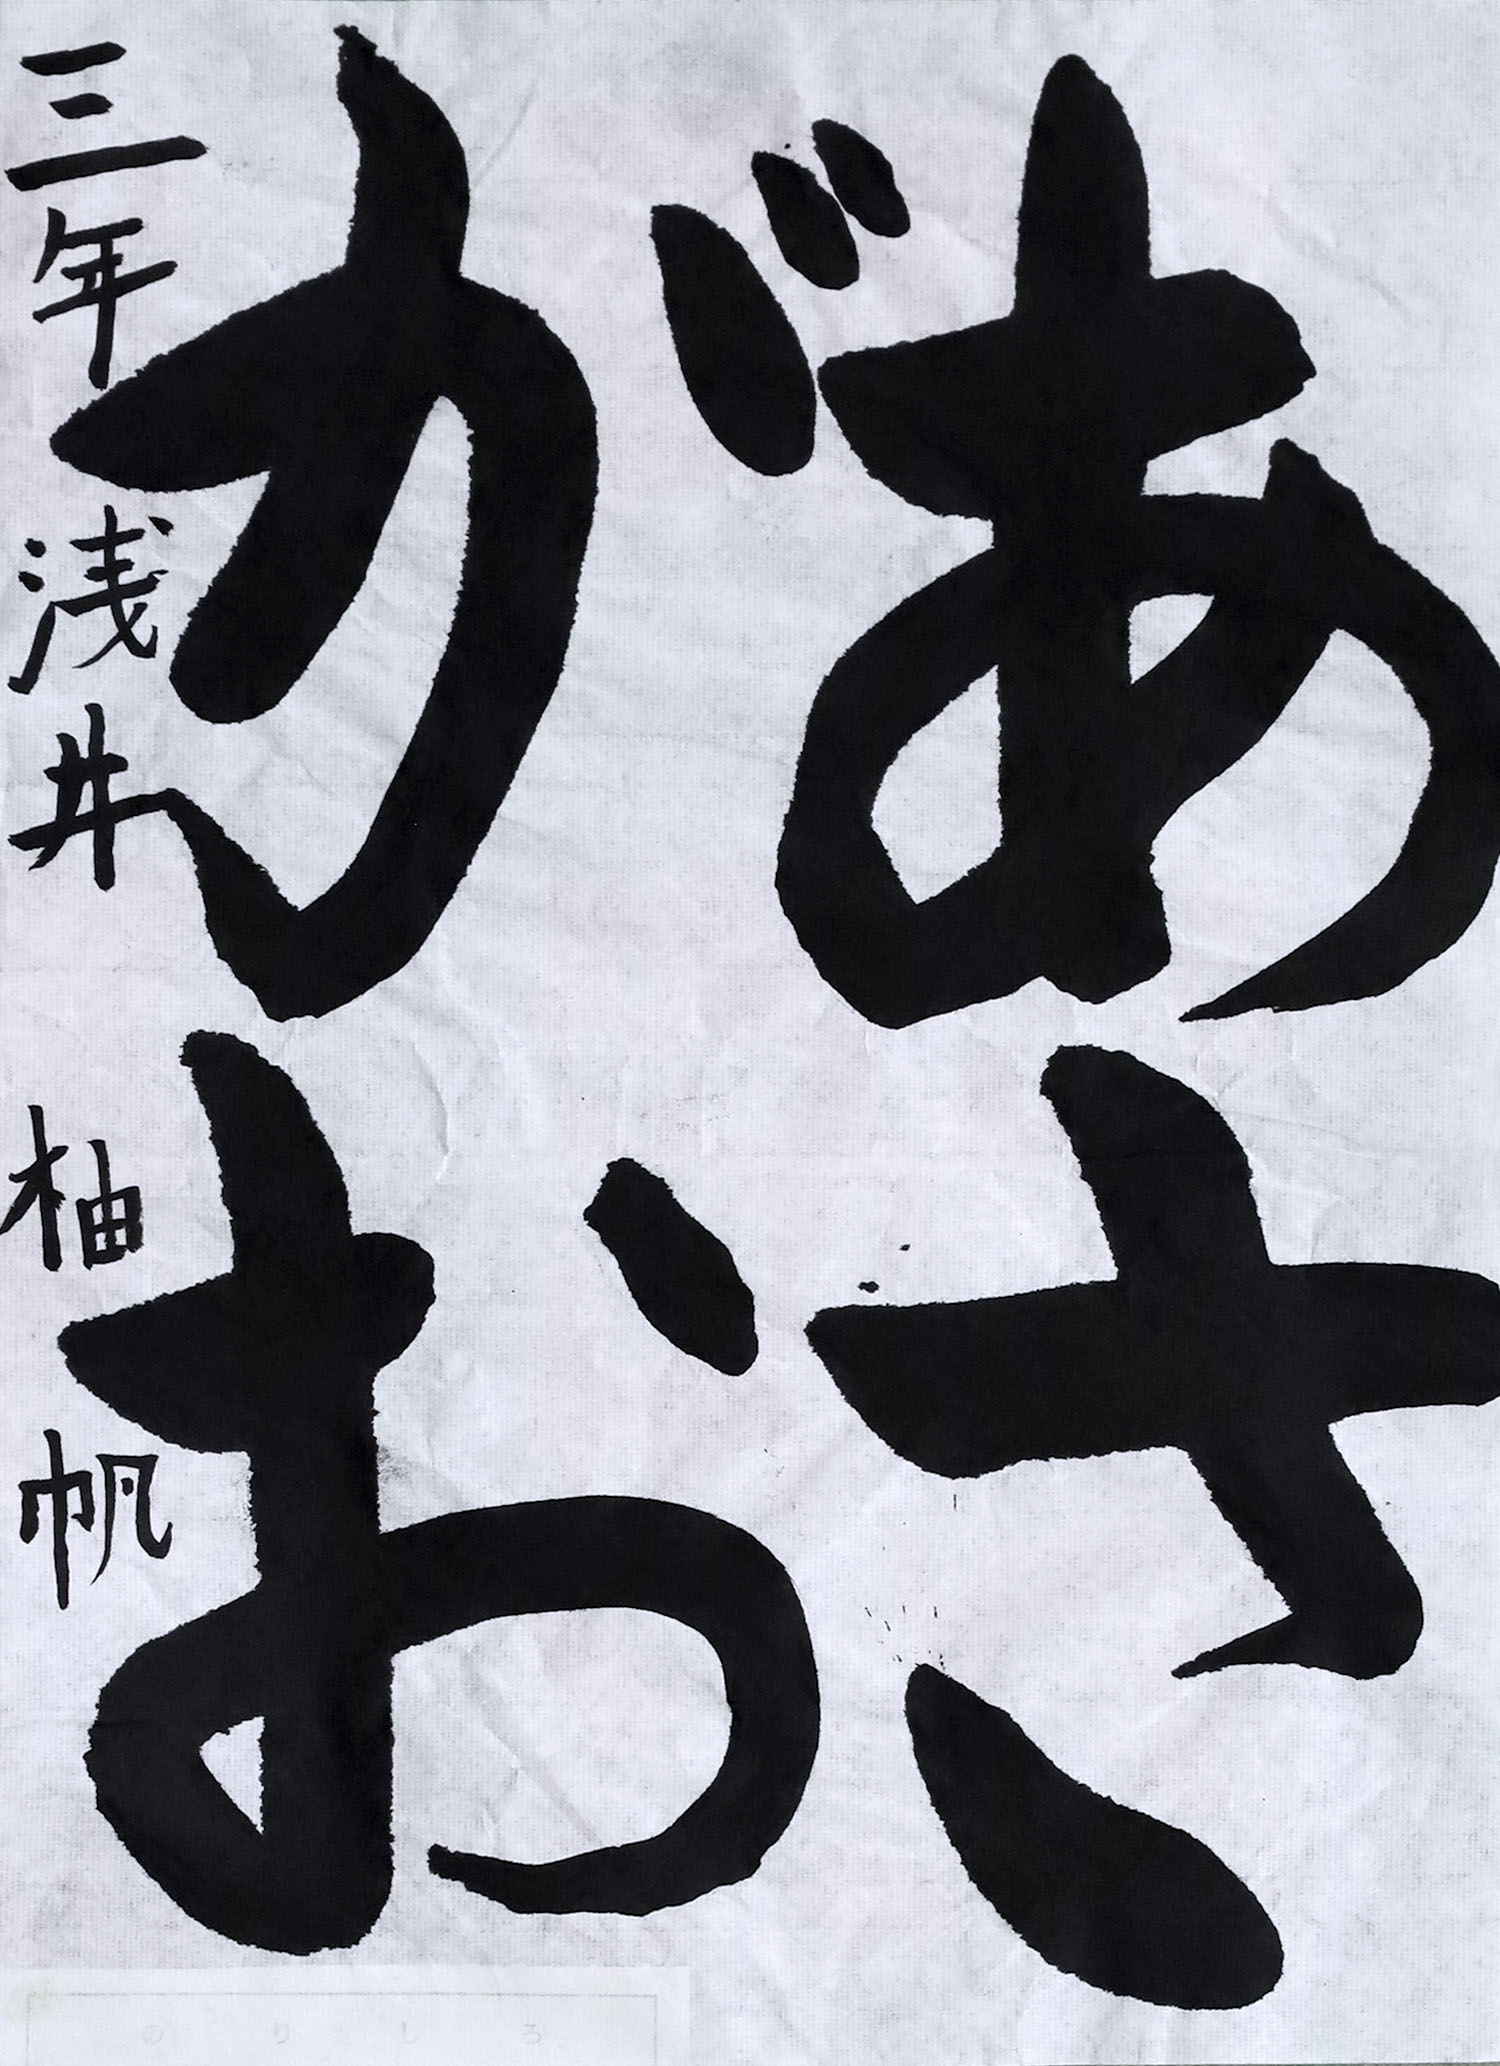 あさ
がお
三年 浅井 柚帆
のりしろ